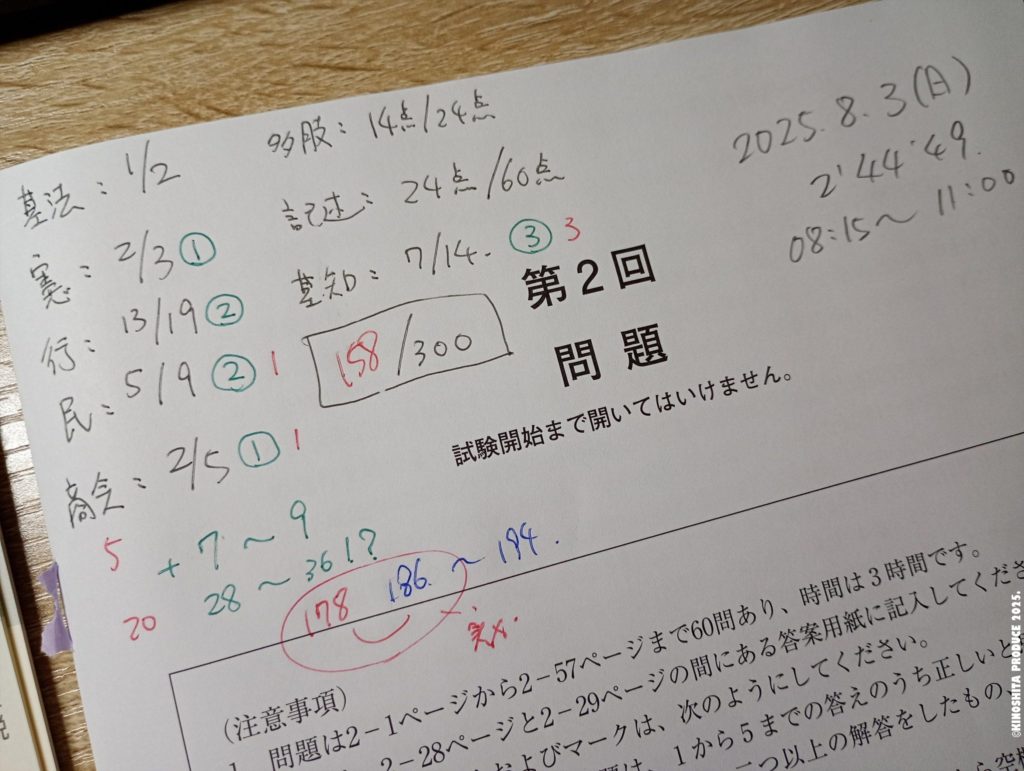 基法: 1/2
多肢: 14点/24点
2025. 8. 3 (日)
憲: 2/3 ①
記述: 24点/60点
2'44'49.
行: 13/19 ②
基知: 7/14. ③ 3
08:15〜11:00
民: 5/9 ② 1
158/300
商会: 2/5 ① 1
第2回
問題
試験開始まで開いてはいけません。
5 + 7 〜 9
20 28 〜 36!?
178 186 〜 194.
(注意事項)
1 問題は2-1ページから2-57ページまで60問あり、時間は3時間です。
2-28ページと2-29ページの間にある答案用紙に記入してくださ
およびマークは、次のようにしてください。
題は、1から5までの答えのうち正しいと
二つ以上の解答をしたもの、
ら空欄
©KINOSHITA PRODUCE 2025.